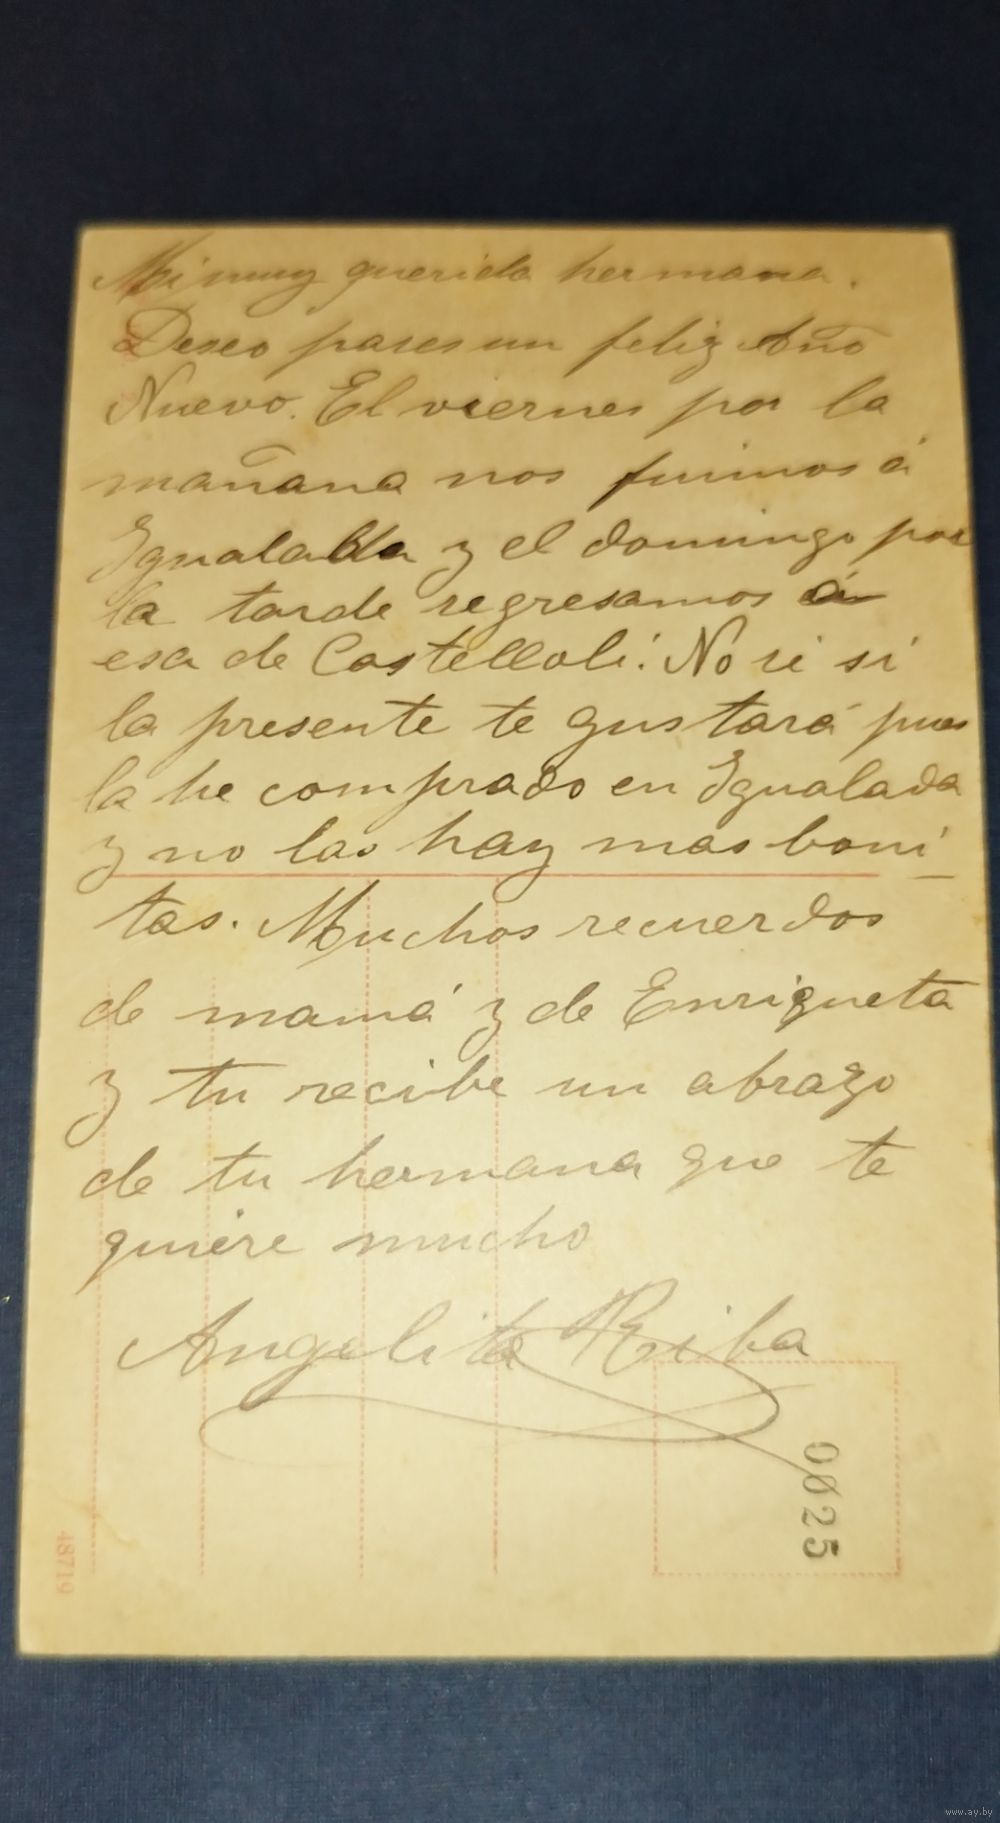 Mi muy querida hermana.
Deseo pases un feliz Año
Nuevo. El viernes por la
mañana nos fuimos á
Igualada y el domingo por
la tarde regresamos á
esa de Castelloli. No se si
la presente te gustará pues
la he comprado en Igualada
y no las hay mas boni-
tas. Muchos recuerdos
de mamá y de Enriqueta
y tu recibe un abrazo
de tu hermana que te
quiere mucho
Angelita Riba
0025
48719
www.ay.by